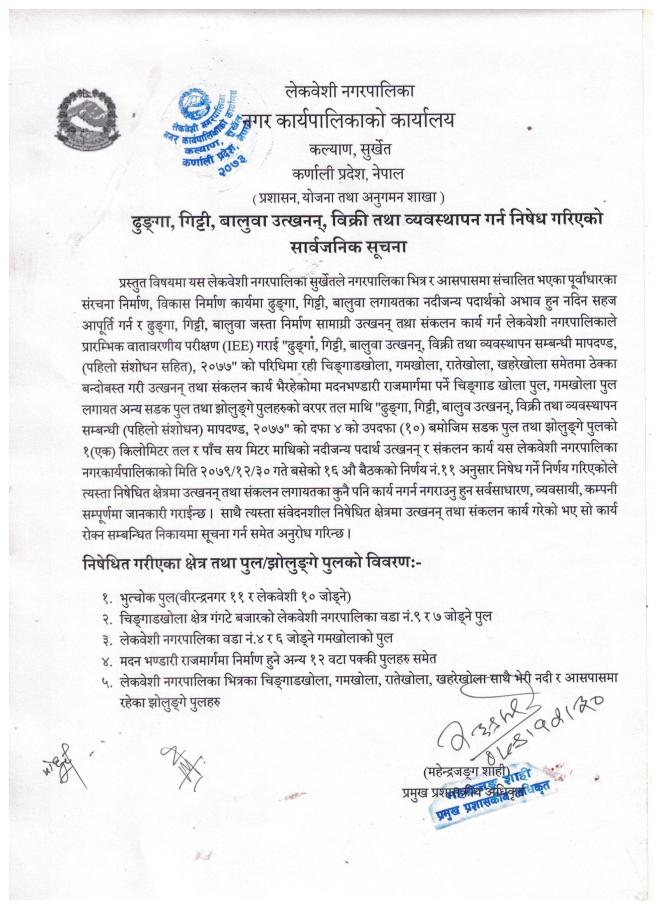 लेकवेशी नगरपालिका
नगर कार्यपालिकाको कार्यालय
कल्याण, सुर्खेत
कर्णाली प्रदेश, नेपाल
( प्रशासन, योजना तथा अनुगमन शाखा )
लेकवेशी नगरपालिका
नगर कार्यपालिकाको कार्यालय
कल्याण, सुर्खेत
कर्णाली प्रदेश, नेपाल
२०७३
ढुङ्गा, गिट्टी, बालुवा उत्खनन्, विक्री तथा व्यवस्थापन गर्न निषेध गरिएको
सार्वजनिक सूचना
प्रस्तुत विषयमा यस लेकवेशी नगरपालिका सुर्खेतले नगरपालिका भित्र र आसपासमा संचालित भएका पूर्वाधारका
संरचना निर्माण, विकास निर्माण कार्यमा ढुङ्गा, गिट्टी, बालुवा लगायतका नदीजन्य पदार्थको अभाव हुन नदिन सहज
आपूर्ति गर्न र ढुङ्गा, गिट्टी, बालुवा जस्ता निर्माण सामाग्री उत्खनन् तथा संकलन कार्य गर्न लेकवेशी नगरपालिकाले
प्रारम्भिक वातावरणीय परीक्षण (IEE) गराई "ढुङ्गा, गिट्टी, बालुवा उत्खनन्, विक्री तथा व्यवस्थापन सम्बन्धी मापदण्ड,
(पहिलो संशोधन सहित), २०७७" को परिधिमा रही चिङ्गाडखोला, गमखोला, रातेखोला, खहरेखोला समेतमा ठेक्का
बन्दोबस्त गरी उत्खनन् तथा संकलन कार्य भैरहेकोमा मदनभण्डारी राजमार्गमा पर्ने चिङ्गाड खोला पुल, गमखोला पुल
लगायत अन्य सडक पुल तथा झोलुङ्गे पुलहरुको वरपर तल माथि "ढुङ्गा, गिट्टी, बालुव उत्खनन्, विक्री तथा व्यवस्थापन
सम्बन्धी (पहिलो संशोधन) मापदण्ड, २०७७" को दफा ४ को उपदफा (१०) बमोजिम सडक पुल तथा झोलुङ्गे पुलको
१(एक) किलोमिटर तल र पाँच सय मिटर माथिको नदीजन्य पदार्थ उत्खनन् र संकलन कार्य यस लेकवेशी नगरपालिका
नगरकार्यपालिकाको मिति २०७९/१२/३० गते बसेको १६ औं बैठकको निर्णय नं.११ अनुसार निषेध गर्ने निर्णय गरिएकोले
त्यस्ता निषेधित क्षेत्रमा उत्खनन् तथा संकलन लगायतका कुनै पनि कार्य नगर्न नगराउनु हुन सर्वसाधारण, व्यवसायी, कम्पनी
सम्पूर्णमा जानकारी गराईन्छ । साथै त्यस्ता संवेदनशील निषेधित क्षेत्रमा उत्खनन् तथा संकलन कार्य गरेको भए सो कार्य
रोक्न सम्बन्धित निकायमा सूचना गर्न समेत अनुरोध गरिन्छ ।
निषेधित गरीएका क्षेत्र तथा पुल/झोलुङ्गे पुलको विवरण:-
१. भुत्चोक पुल(वीरन्द्रनगर ११ र लेकवेशी १० जोड्ने)
२. चिङ्गाडखोला क्षेत्र गंगटे बजारको लेकवेशी नगरपालिका वडा नं.९ र ७ जोड्ने पुल
३. लेकवेशी नगरपालिका वडा नं.४ र ६ जोड्ने गमखोलाको पुल
४. मदन भण्डारी राजमार्गमा निर्माण हुने अन्य १२ वटा पक्की पुलहरु समेत
५. लेकवेशी नगरपालिका भित्रका चिङ्गाडखोला, गमखोला, रातेखोला, खहरेखोला साथै भेरी नदी र आसपासमा
रहेका झोलुङ्गे पुलहरु
(महेन्द्रजङ्ग शाही)
प्रमुख प्रशासकीय अधिकृत
महेन्द्रजङ्ग शाही
प्रमुख प्रशासकीय अधिकृत